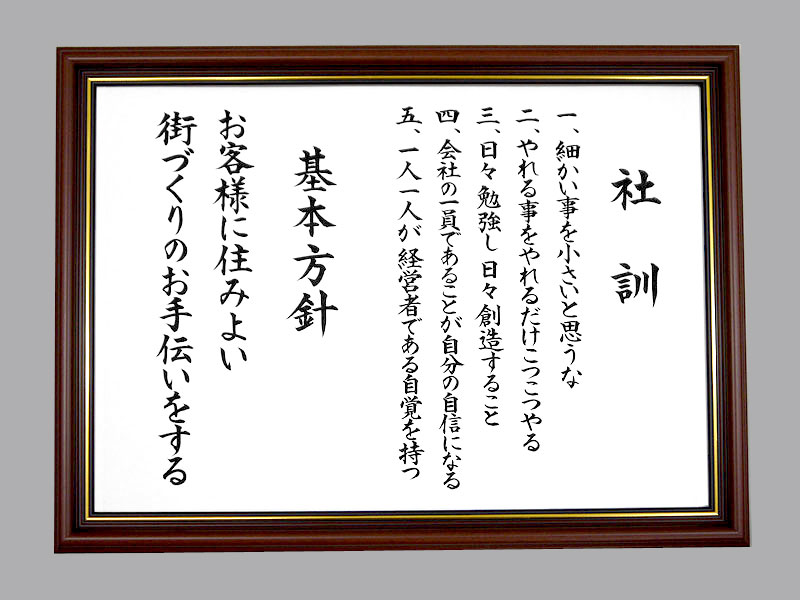 社訓
一、細かい事を小さいと思うな
二、やれる事をやれるだけこつこつやる
三、日々勉強し日々創造すること
四、会社の一員であることが自分の自信になる
五、一人一人が経営者である自覚を持つ
基本方針
お客様に住みよい
街づくりのお手伝いをする